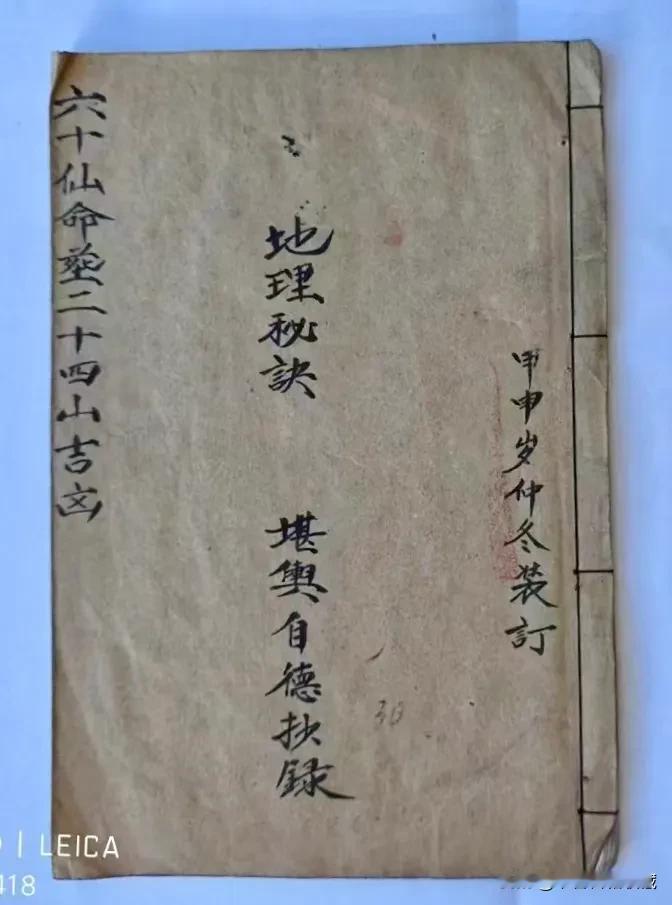 甲申岁仲冬装訂
地理秘訣
堪輿自德抄録
六十仙命塟二十四山吉凶
30
LEICA
418